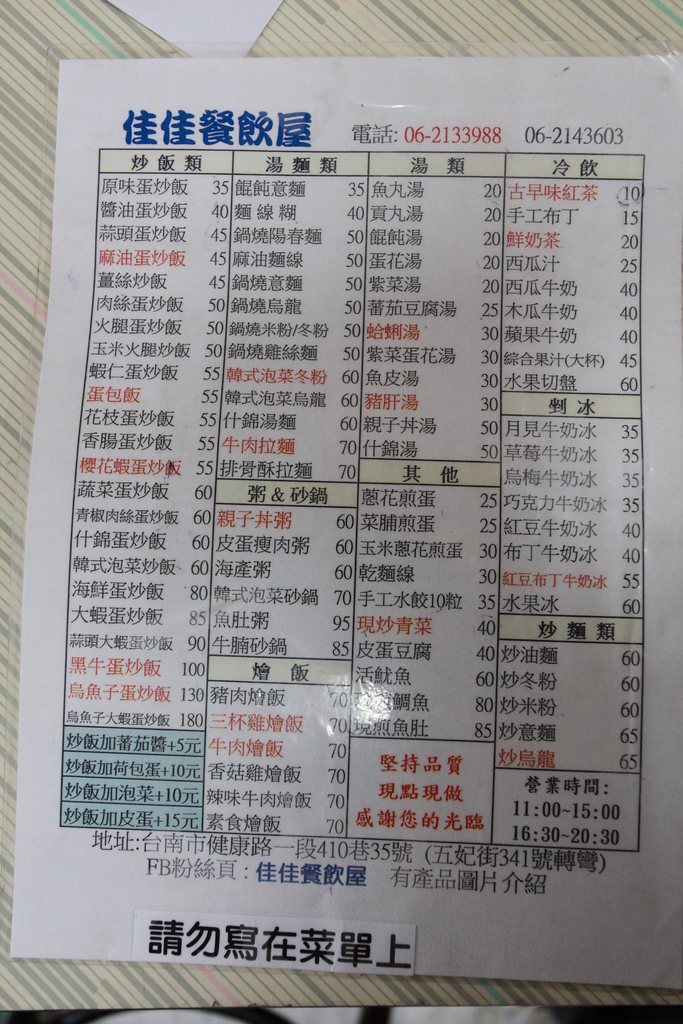 佳佳餐飲屋 電話: 06-2133988 06-2143603
炒飯類
原味蛋炒飯 35
醬油蛋炒飯 40
蒜頭蛋炒飯 45
麻油蛋炒飯 45
薑絲炒飯 45
肉絲蛋炒飯 50
火腿蛋炒飯 50
玉米火腿炒飯 50
蝦仁蛋炒飯 55
蛋包飯 55
花枝蛋炒飯 55
香腸蛋炒飯 55
櫻花蝦蛋炒飯 55
蔬菜蛋炒飯 60
青椒肉絲蛋炒飯 60
什錦蛋炒飯 60
韓式泡菜炒飯 60
海鮮蛋炒飯 80
大蝦蛋炒飯 85
蒜頭大蝦蛋炒飯 90
黑牛蛋炒飯 100
烏魚子蛋炒飯 130
烏魚子大蝦蛋炒飯 180
炒飯加蕃茄醬+5元
炒飯加荷包蛋+10元
炒飯加泡菜+10元
炒飯加皮蛋+15元
湯麵類
餛飩意麵 35
麵線糊 40
鍋燒陽春麵 50
麻油麵線 50
鍋燒意麵 50
鍋燒烏龍 50
鍋燒米粉/冬粉 50
鍋燒雞絲麵 50
韓式泡菜冬粉 60
韓式泡菜烏龍 60
什錦湯麵 60
牛肉拉麵 70
排骨酥拉麵 70
粥&砂鍋
親子丼粥 60
皮蛋瘦肉粥 60
海產粥 60
韓式泡菜砂鍋 70
魚肚粥 95
牛腩砂鍋 85
燴飯
豬肉燴飯 70
三杯雞燴飯 70
牛肉燴飯 70
香菇雞燴飯 70
辣味牛肉燴飯 70
素食燴飯 70
湯類
魚丸湯 20
貢丸湯 20
餛飩湯 20
蛋花湯 20
紫菜湯 20
蕃茄豆腐湯 25
蛤蜊湯 30
紫菜蛋花湯 30
魚皮湯 30
豬肝湯 30
親子丼湯 50
什錦湯 50
其他
蔥花煎蛋 25
菜脯煎蛋 25
玉米蔥花煎蛋 30
乾麵線 30
手工水餃10粒 35
現炒青菜 40
皮蛋豆腐 40
活魷魚 60
鯛魚 80
現煎魚肚 85
堅持品質
現點現做
感謝您的光臨
冷飲
古早味紅茶 10
手工布丁 15
鮮奶茶 20
西瓜汁 25
西瓜牛奶 40
木瓜牛奶 40
蘋果牛奶 40
綜合果汁(大杯) 45
水果切盤 60
剉冰
月見牛奶冰 35
草莓牛奶冰 35
烏梅牛奶冰 35
巧克力牛奶冰 35
紅豆牛奶冰 40
布丁牛奶冰 40
紅豆布丁牛奶冰 55
水果冰 60
炒麵類
炒油麵 60
炒冬粉 60
炒米粉 60
炒意麵 65
炒烏龍 65
營業時間:
11:00~15:00
16:30~20:30
地址:台南市健康路一段410巷35號 (五妃街341號轉彎)
FB粉絲頁:佳佳餐飲屋 有產品圖片介紹
請勿寫在菜單上